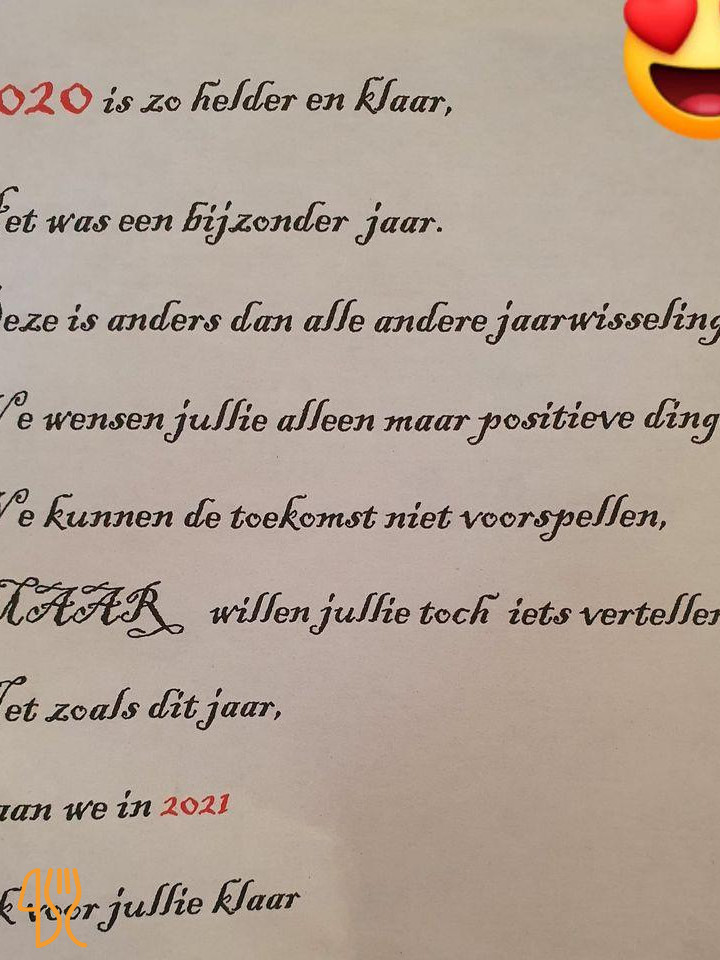 020 is zo helder en klaar,
et was een bijzonder jaar.
eze is anders dan alle andere jaarwisseling
e wensen jullie alleen maar positieve ding
e kunnen de toekomst niet voorspellen,
MAAR willen jullie toch iets verteller
et zoals dit jaar,
aan we in 2021
k voor jullie klaar